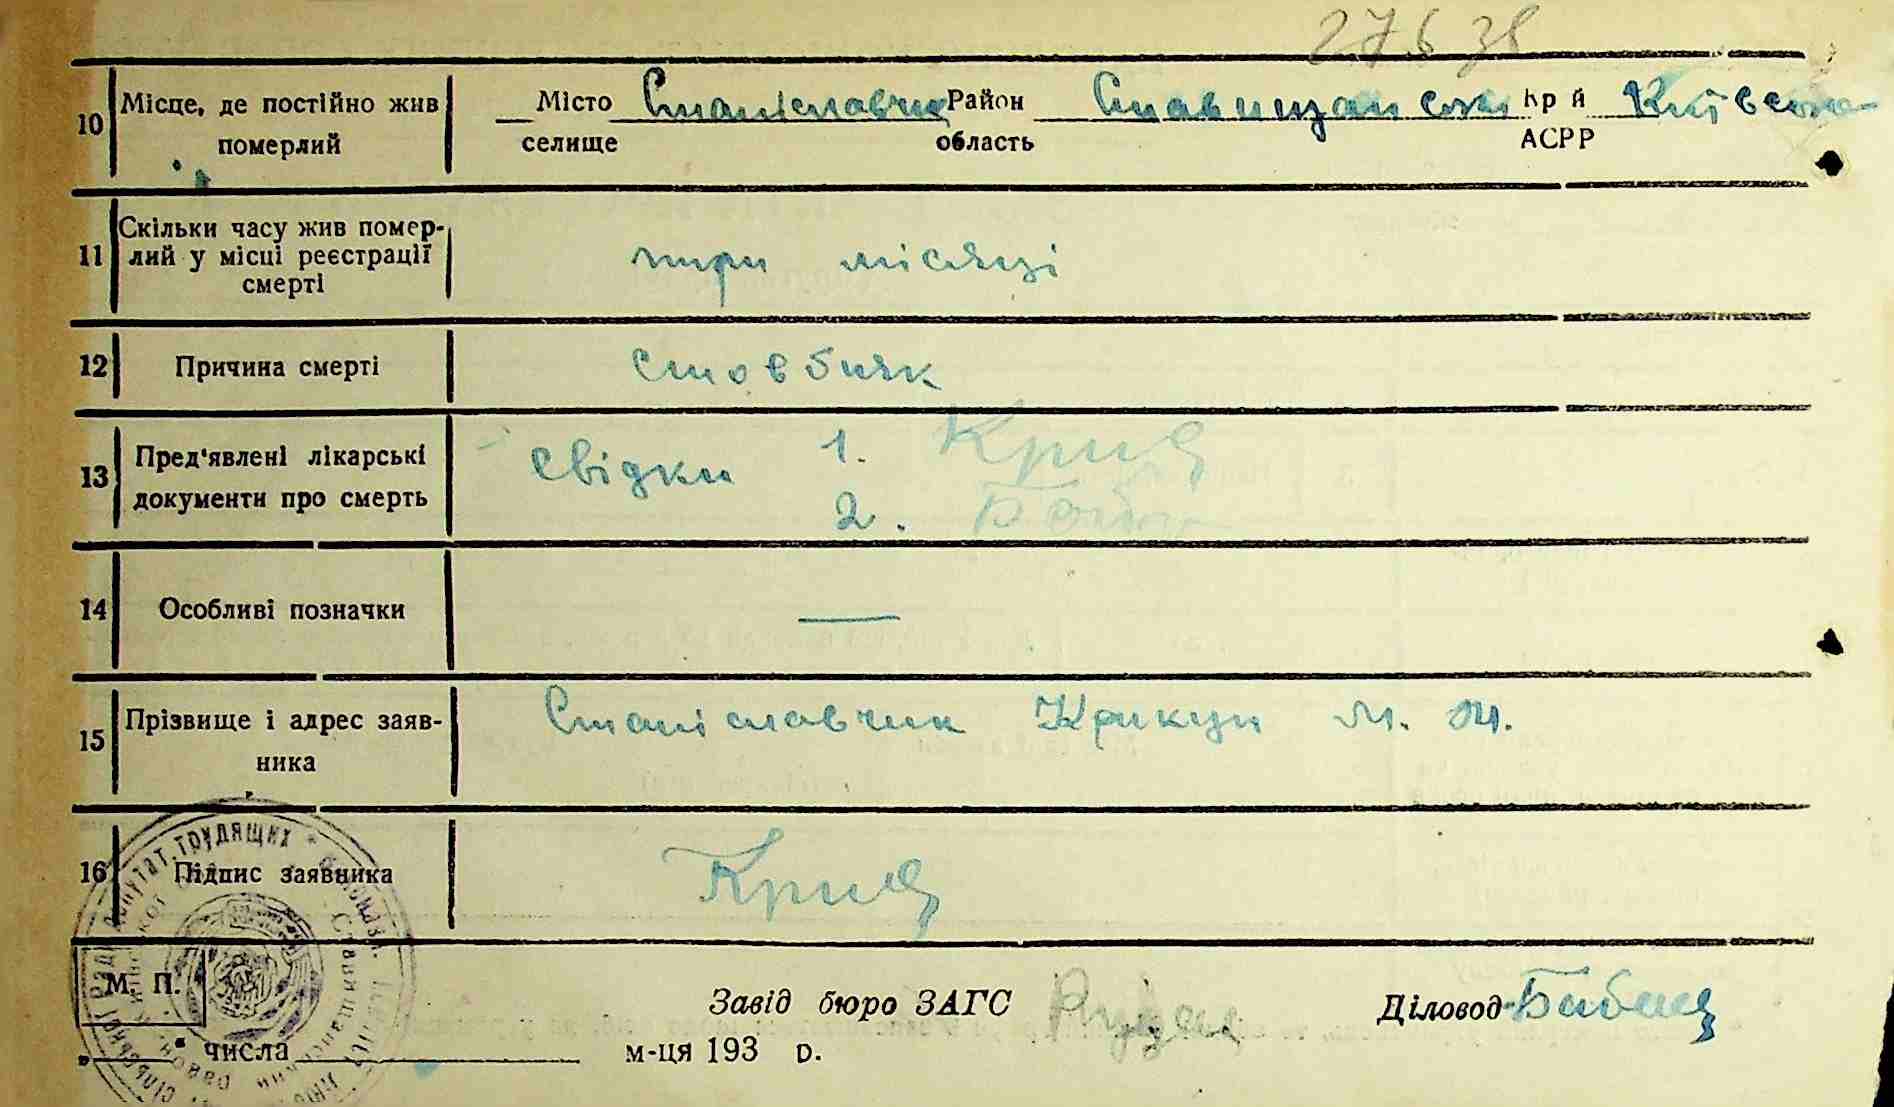 27.6 38
10 Місце, де постійно жив померлий
Місто Станіславчик Район Ставищанськ Кр й Київська
селище область АСРР
11 Скільки часу жив помер-
лий у місці реєстрації
смерті
три місяці
12 Причина смерті стовбняк
13 Пред'явлені лікарські
документи про смерть
свідки 1.
2.
14 Особливі позначки —
15 Прізвище і адрес заяв-
ника
Станіславчик Крикун М. Т.
16 Підпис заявника
М. П.
Завід бюро ЗАГС Діловод
" " числа м-ця 193 р.
депутат. трудящих
Ставищанський район